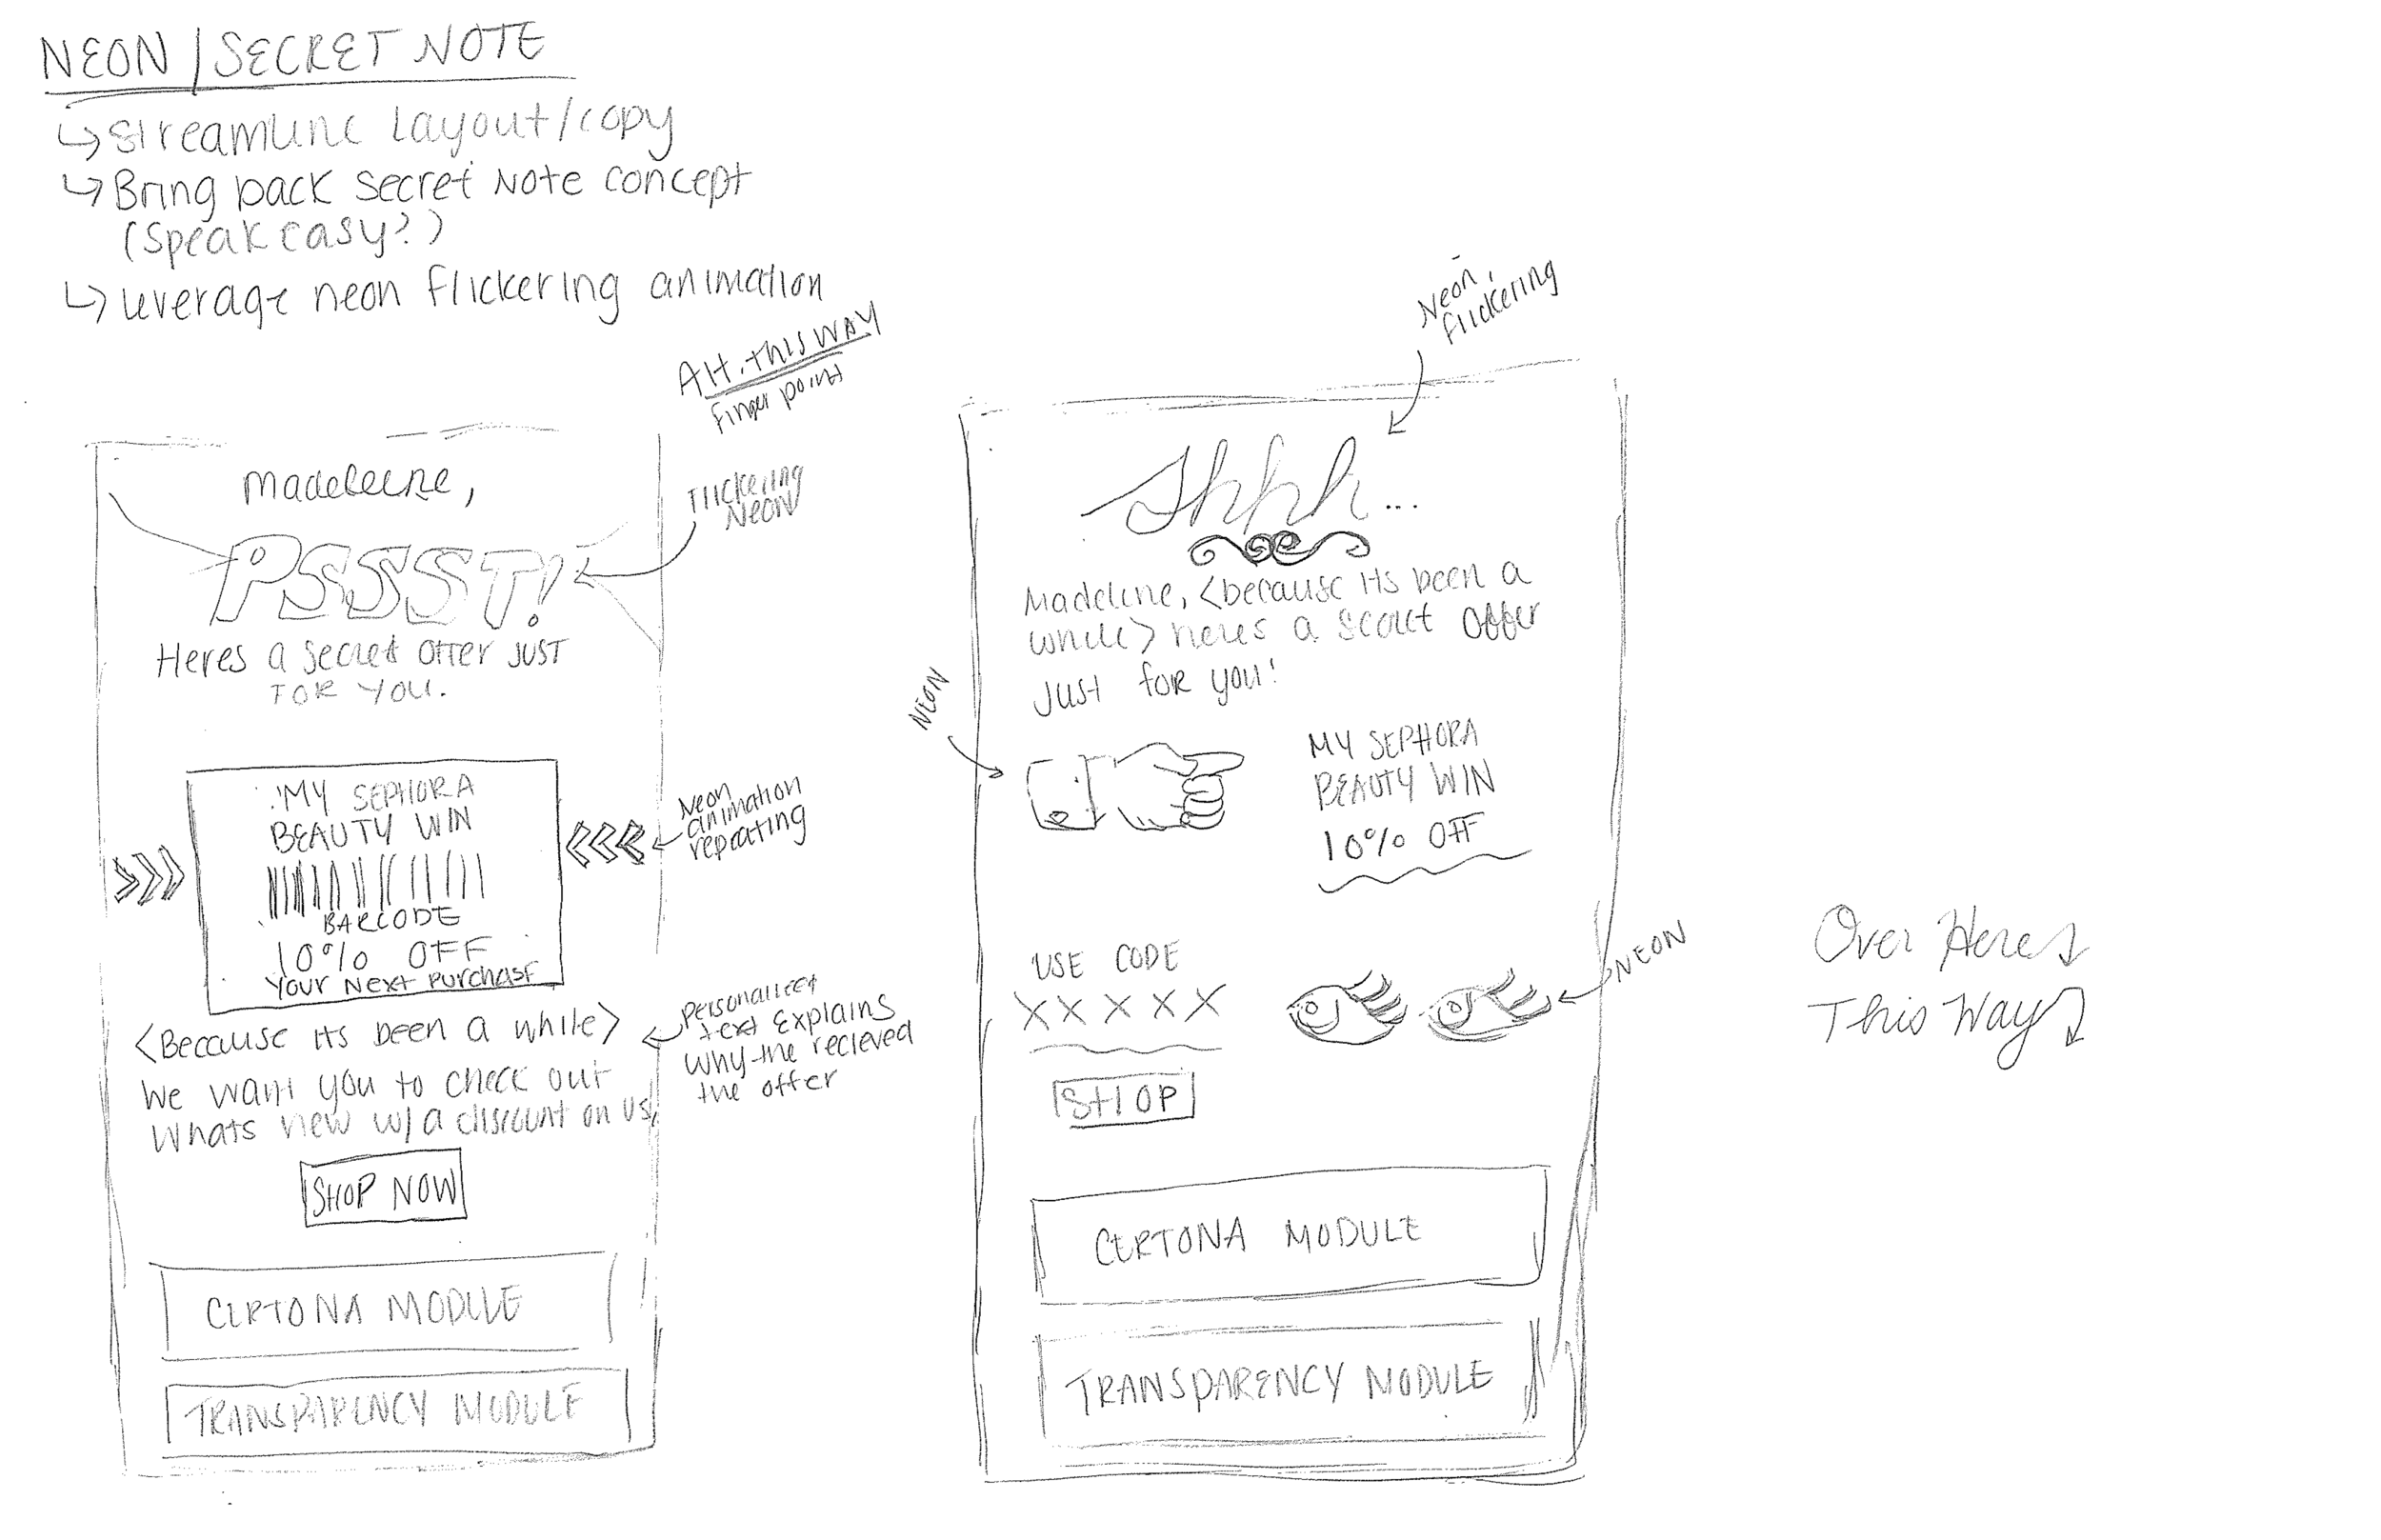 NEON/SECRET NOTE
↳ Streamline Layout/copy
↳ Bring back Secret Note concept
(Speakeasy?)
↳ leverage neon flickering animation
Alt. this way
finger point
Madeleine,
PSSST!
Flickering
NEON
Heres a Secret Offer JUST
FOR YOU.
MY SEPHORA
BEAUTY WIN
BARCODE
10% OFF
Your Next Purchase
Neon
animation
repeating
<Because its been a while>
We want you to check out
Whats new w/ a discount on us,
Personalized
text explains
why the recieved
the offer
SHOP NOW
CERTONA MODULE
TRANSPARENCY MODULE
Neon,
flickering
Shhh...
Madeline, <because its been a
while> heres a secret offer
just for you!
NEON
MY SEPHORA
BEAUTY WIN
10% OFF
USE CODE
XXXXX
NEON
SHOP
CERTONA MODULE
TRANSPARENCY MODULE
Over Here
This Way